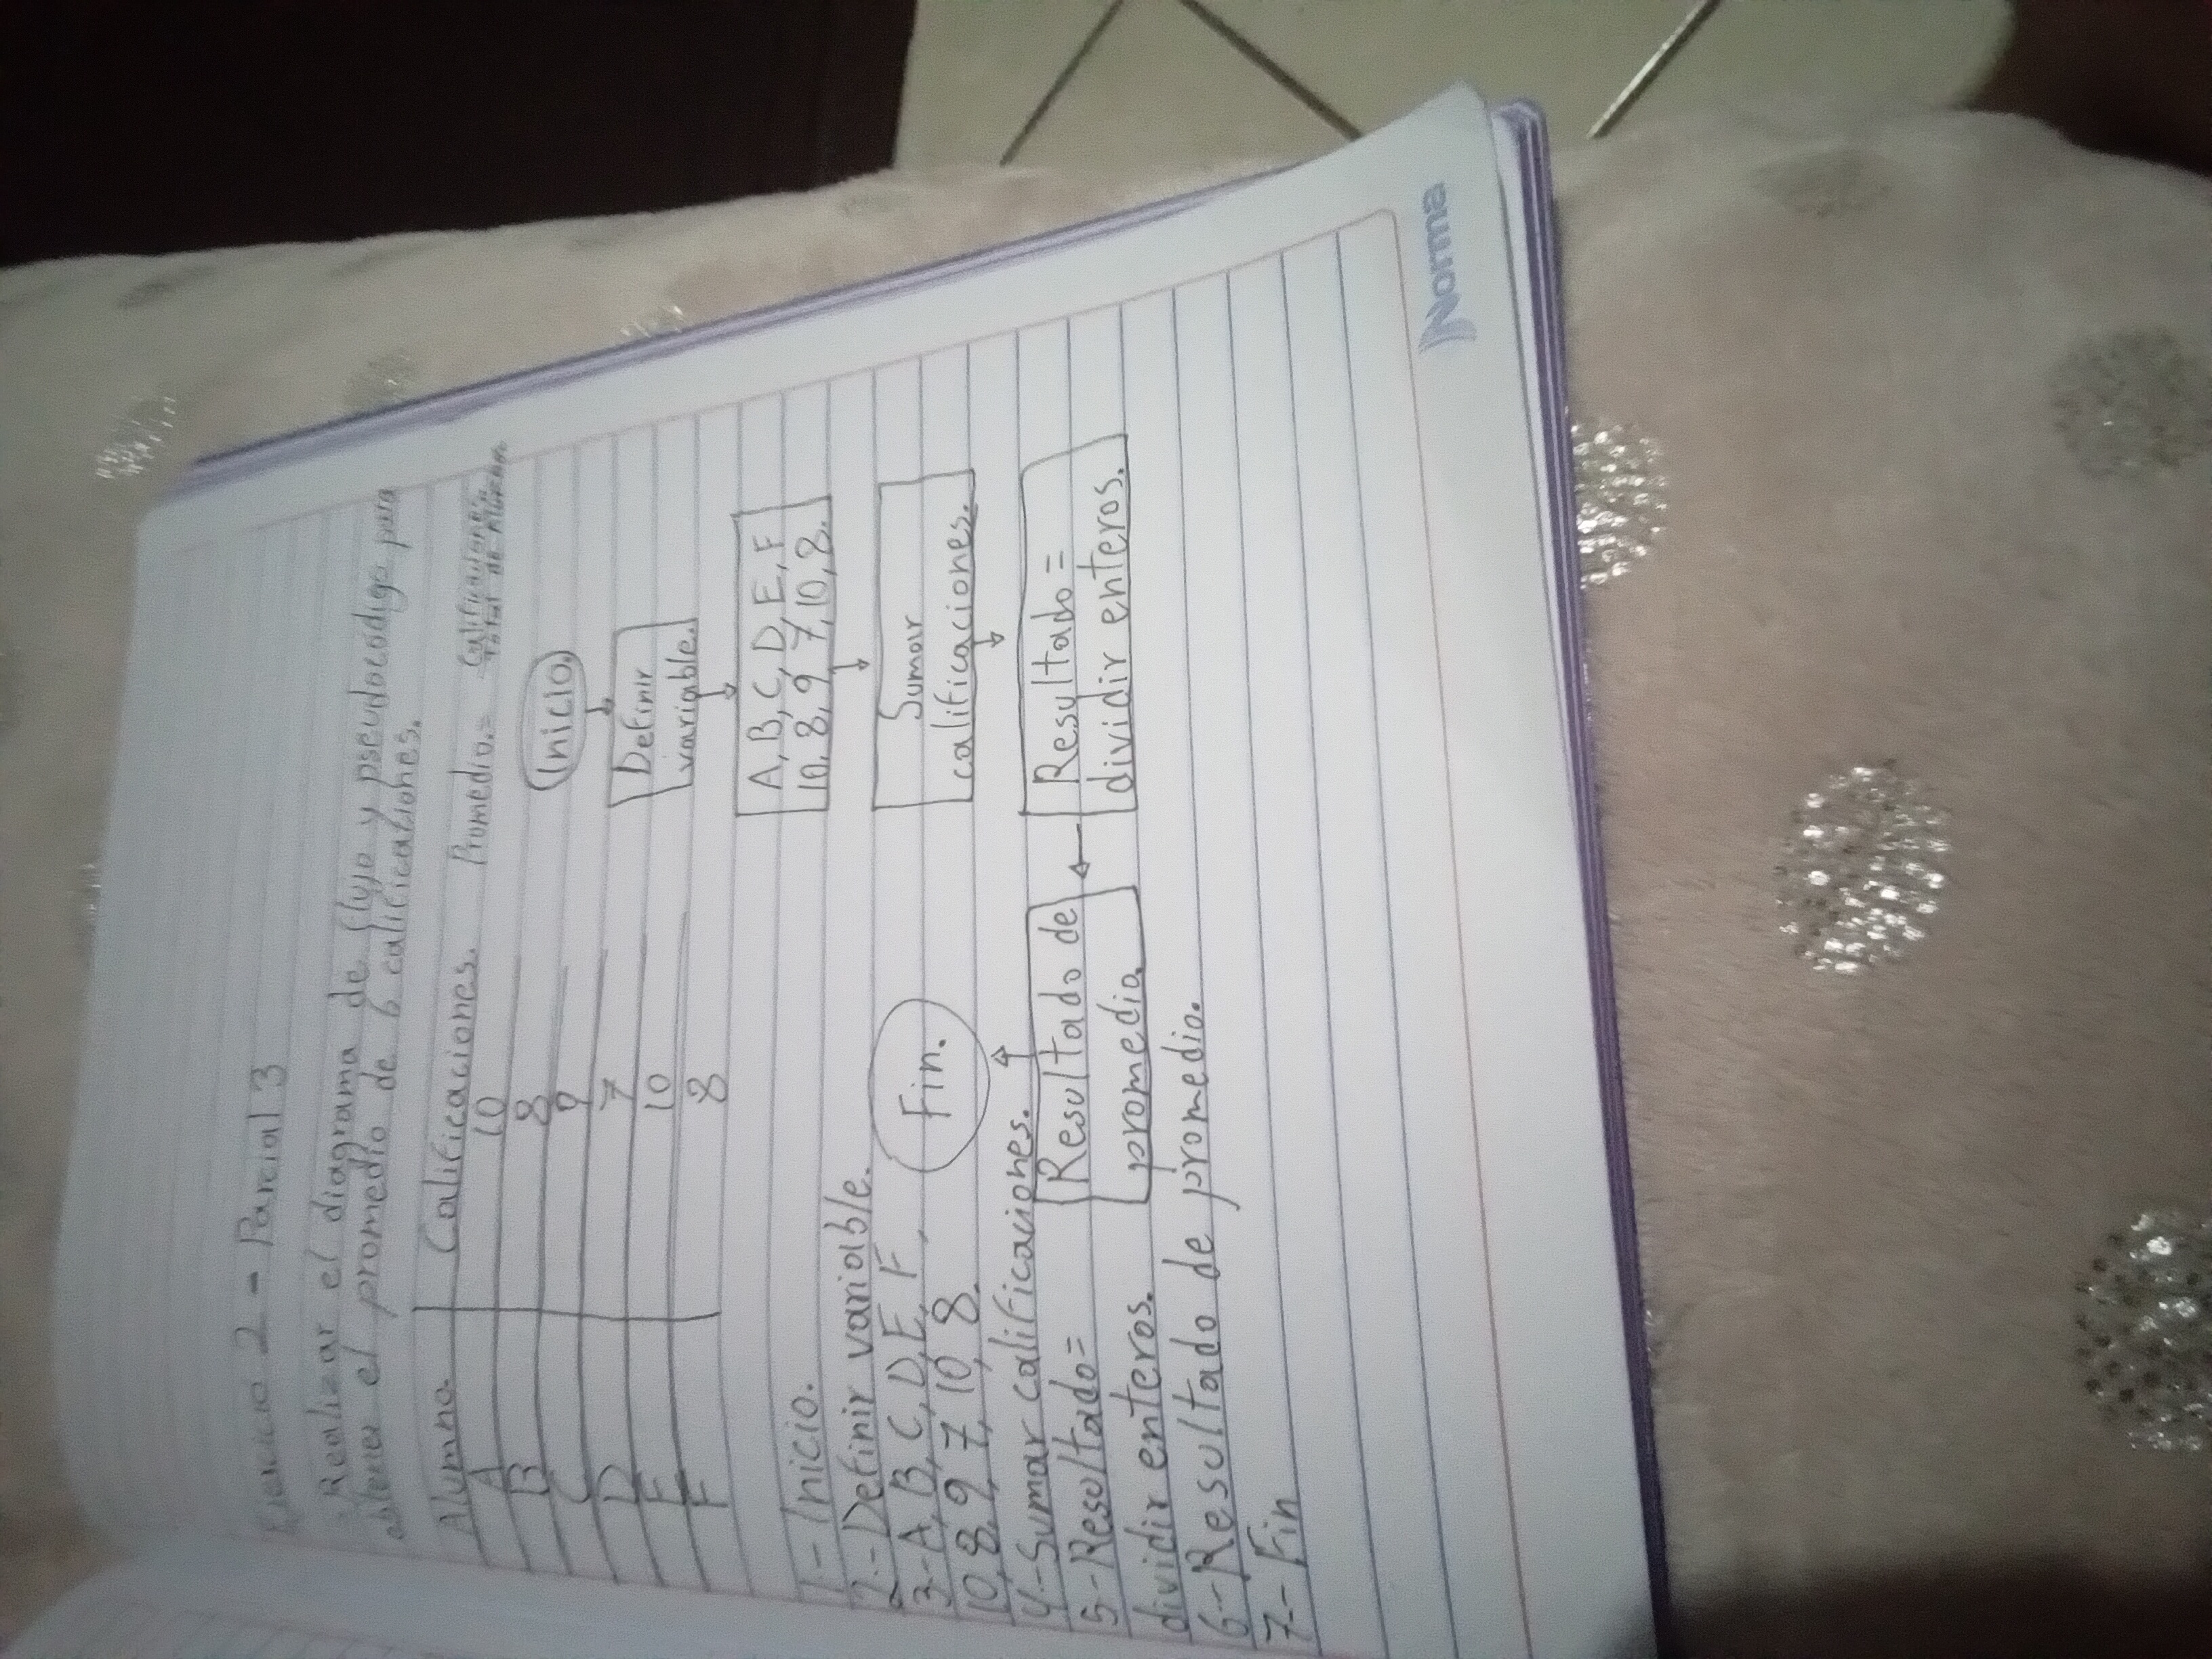 Ejercicio 2 - Parcial 3
Realizar el diagrama de flujo y pseudocódigo para
obtener el promedio de 6 calificaciones.
Alumno. Calificaciones. Promedio. = Calificaciones
Total de Alumnos
A 10
B 8
C 9
D 7
E 10
F 8
Inicio.
Definir
variable.
A, B, C, D, E, F
10, 8, 9 7, 10, 8.
Sumar
calificaciones.
Resultado =
dividir enteros.
Resultado de
promedio.
Fin.
1.- Inicio.
2.- Definir variable.
3.- A, B, C, D, E, F
10, 8, 9, 7, 10, 8.
4.- Sumar calificaciones.
5.- Resultado =
dividir enteros.
6.- Resultado de promedio.
7.- Fin
Norma